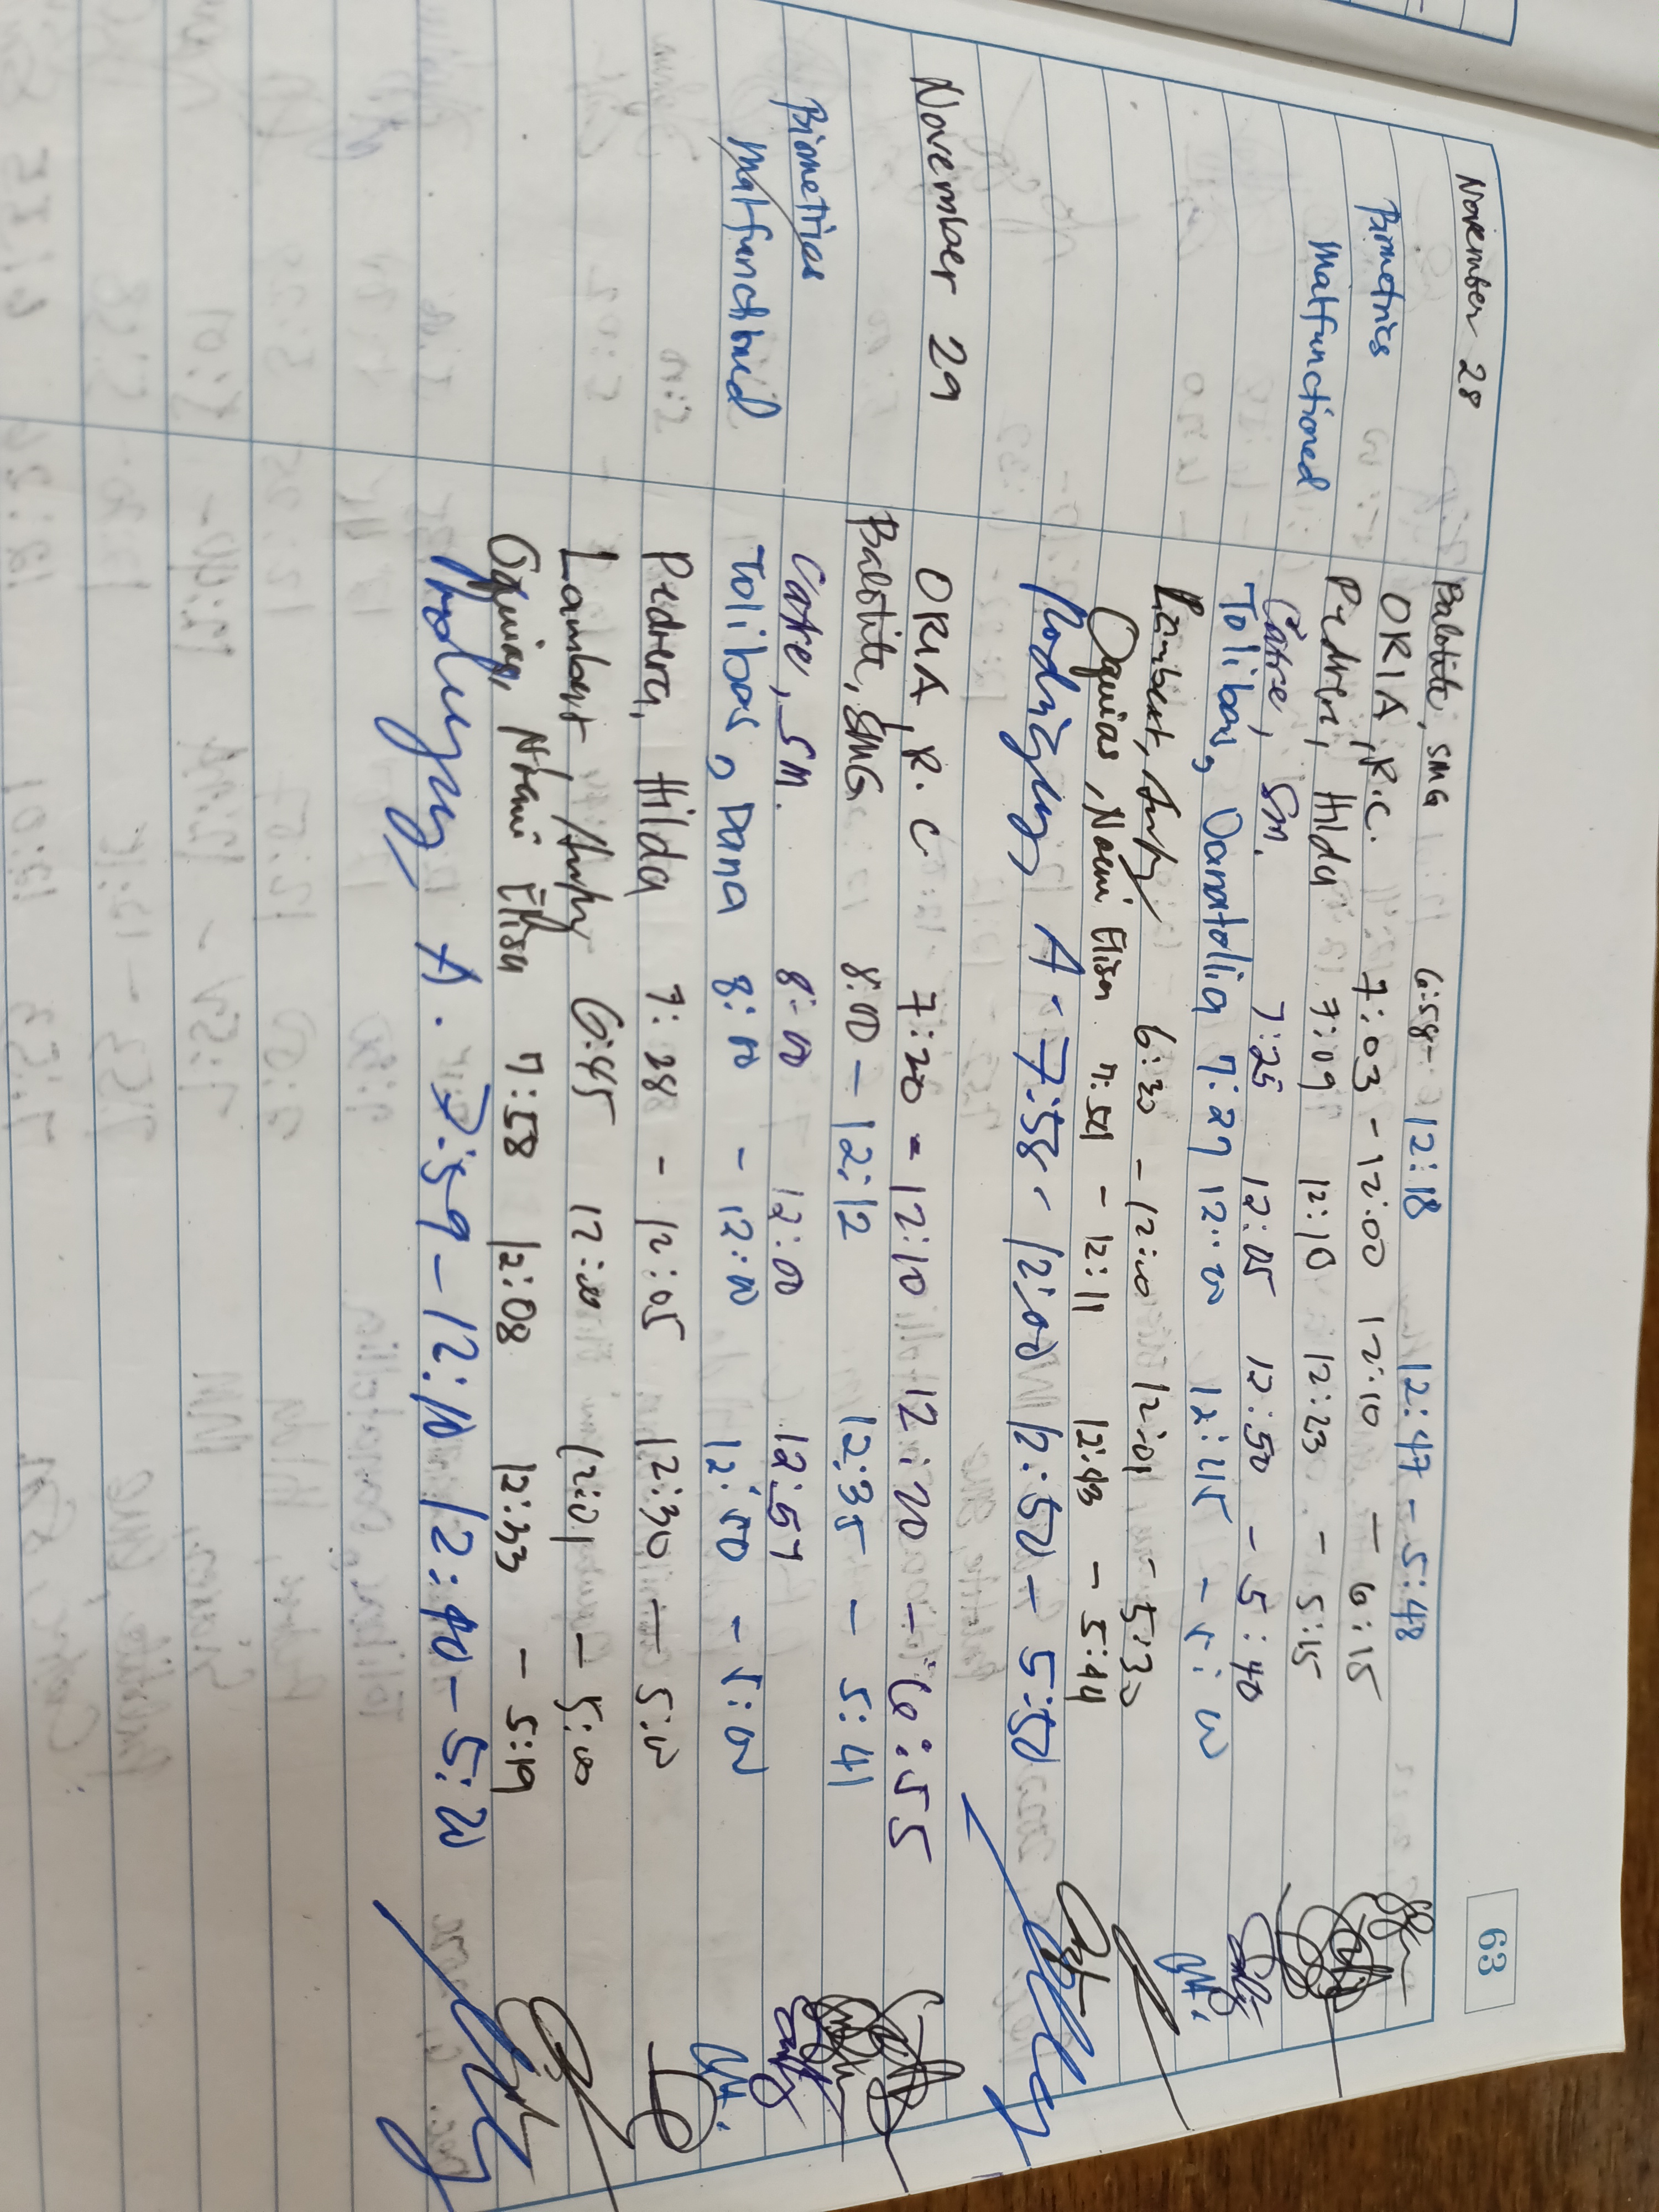 63
November 28 Balotite, SMG 6:58 - 12:18 12:47 - 5:48
Biometrics ORIA, R.C. 7:03 - 12:00 12:10 - 6:15
Malfunctioned Pedrera, Hilda 7:09 12:10 12:23 - 5:15
Catre, SM. 7:25 12:05 12:50 - 5:40
Tolibas, Danatolia 7:27 12:00 12:45 - 5:00
Lambert, 6:30 - 12:00 12:01 - 5:30
Oquias, Noemi Elisa 7:51 - 12:11 12:43 - 5:44
A - 7:58 - 12:00 12:50 - 5:50
November 29 ORIA, R. C 7:20 - 12:10 12:20 - 6:55
Balotite, SMG 8:00 - 12:12 12:35 - 5:41
Biometrics Catre, SM. 8:00 12:00 12:57
Malfunctioned Tolibas, Dana 8:00 - 12:00 12:50 - 5:00
Pedrera, Hilda 7:28 - 12:05 12:30 - 5:00
Lambert 6:45 12:00 12:01 - 5:00
Oquias, Noemi Elisa 7:58 12:08 12:33 - 5:19
A. 7:59 - 12:10 12:40 - 5:20